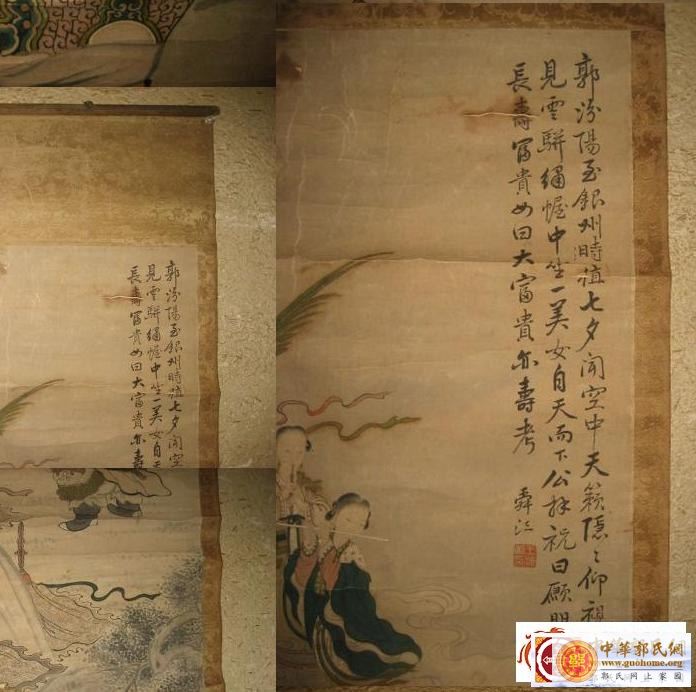 郭汾陽至銀州時值七夕聞空中天籟隱〻仰視
見雲駢繡幄中坐一美女自天而下公拜祝曰願
長壽富貴女曰大富貴亦壽考
舜江
郭汾陽至銀州時值七夕聞空
見雲駢繡幄中坐一美女自天
長壽富貴女曰大富貴亦壽
中華郭氏網
www.guohome.org
郭氏网上家園